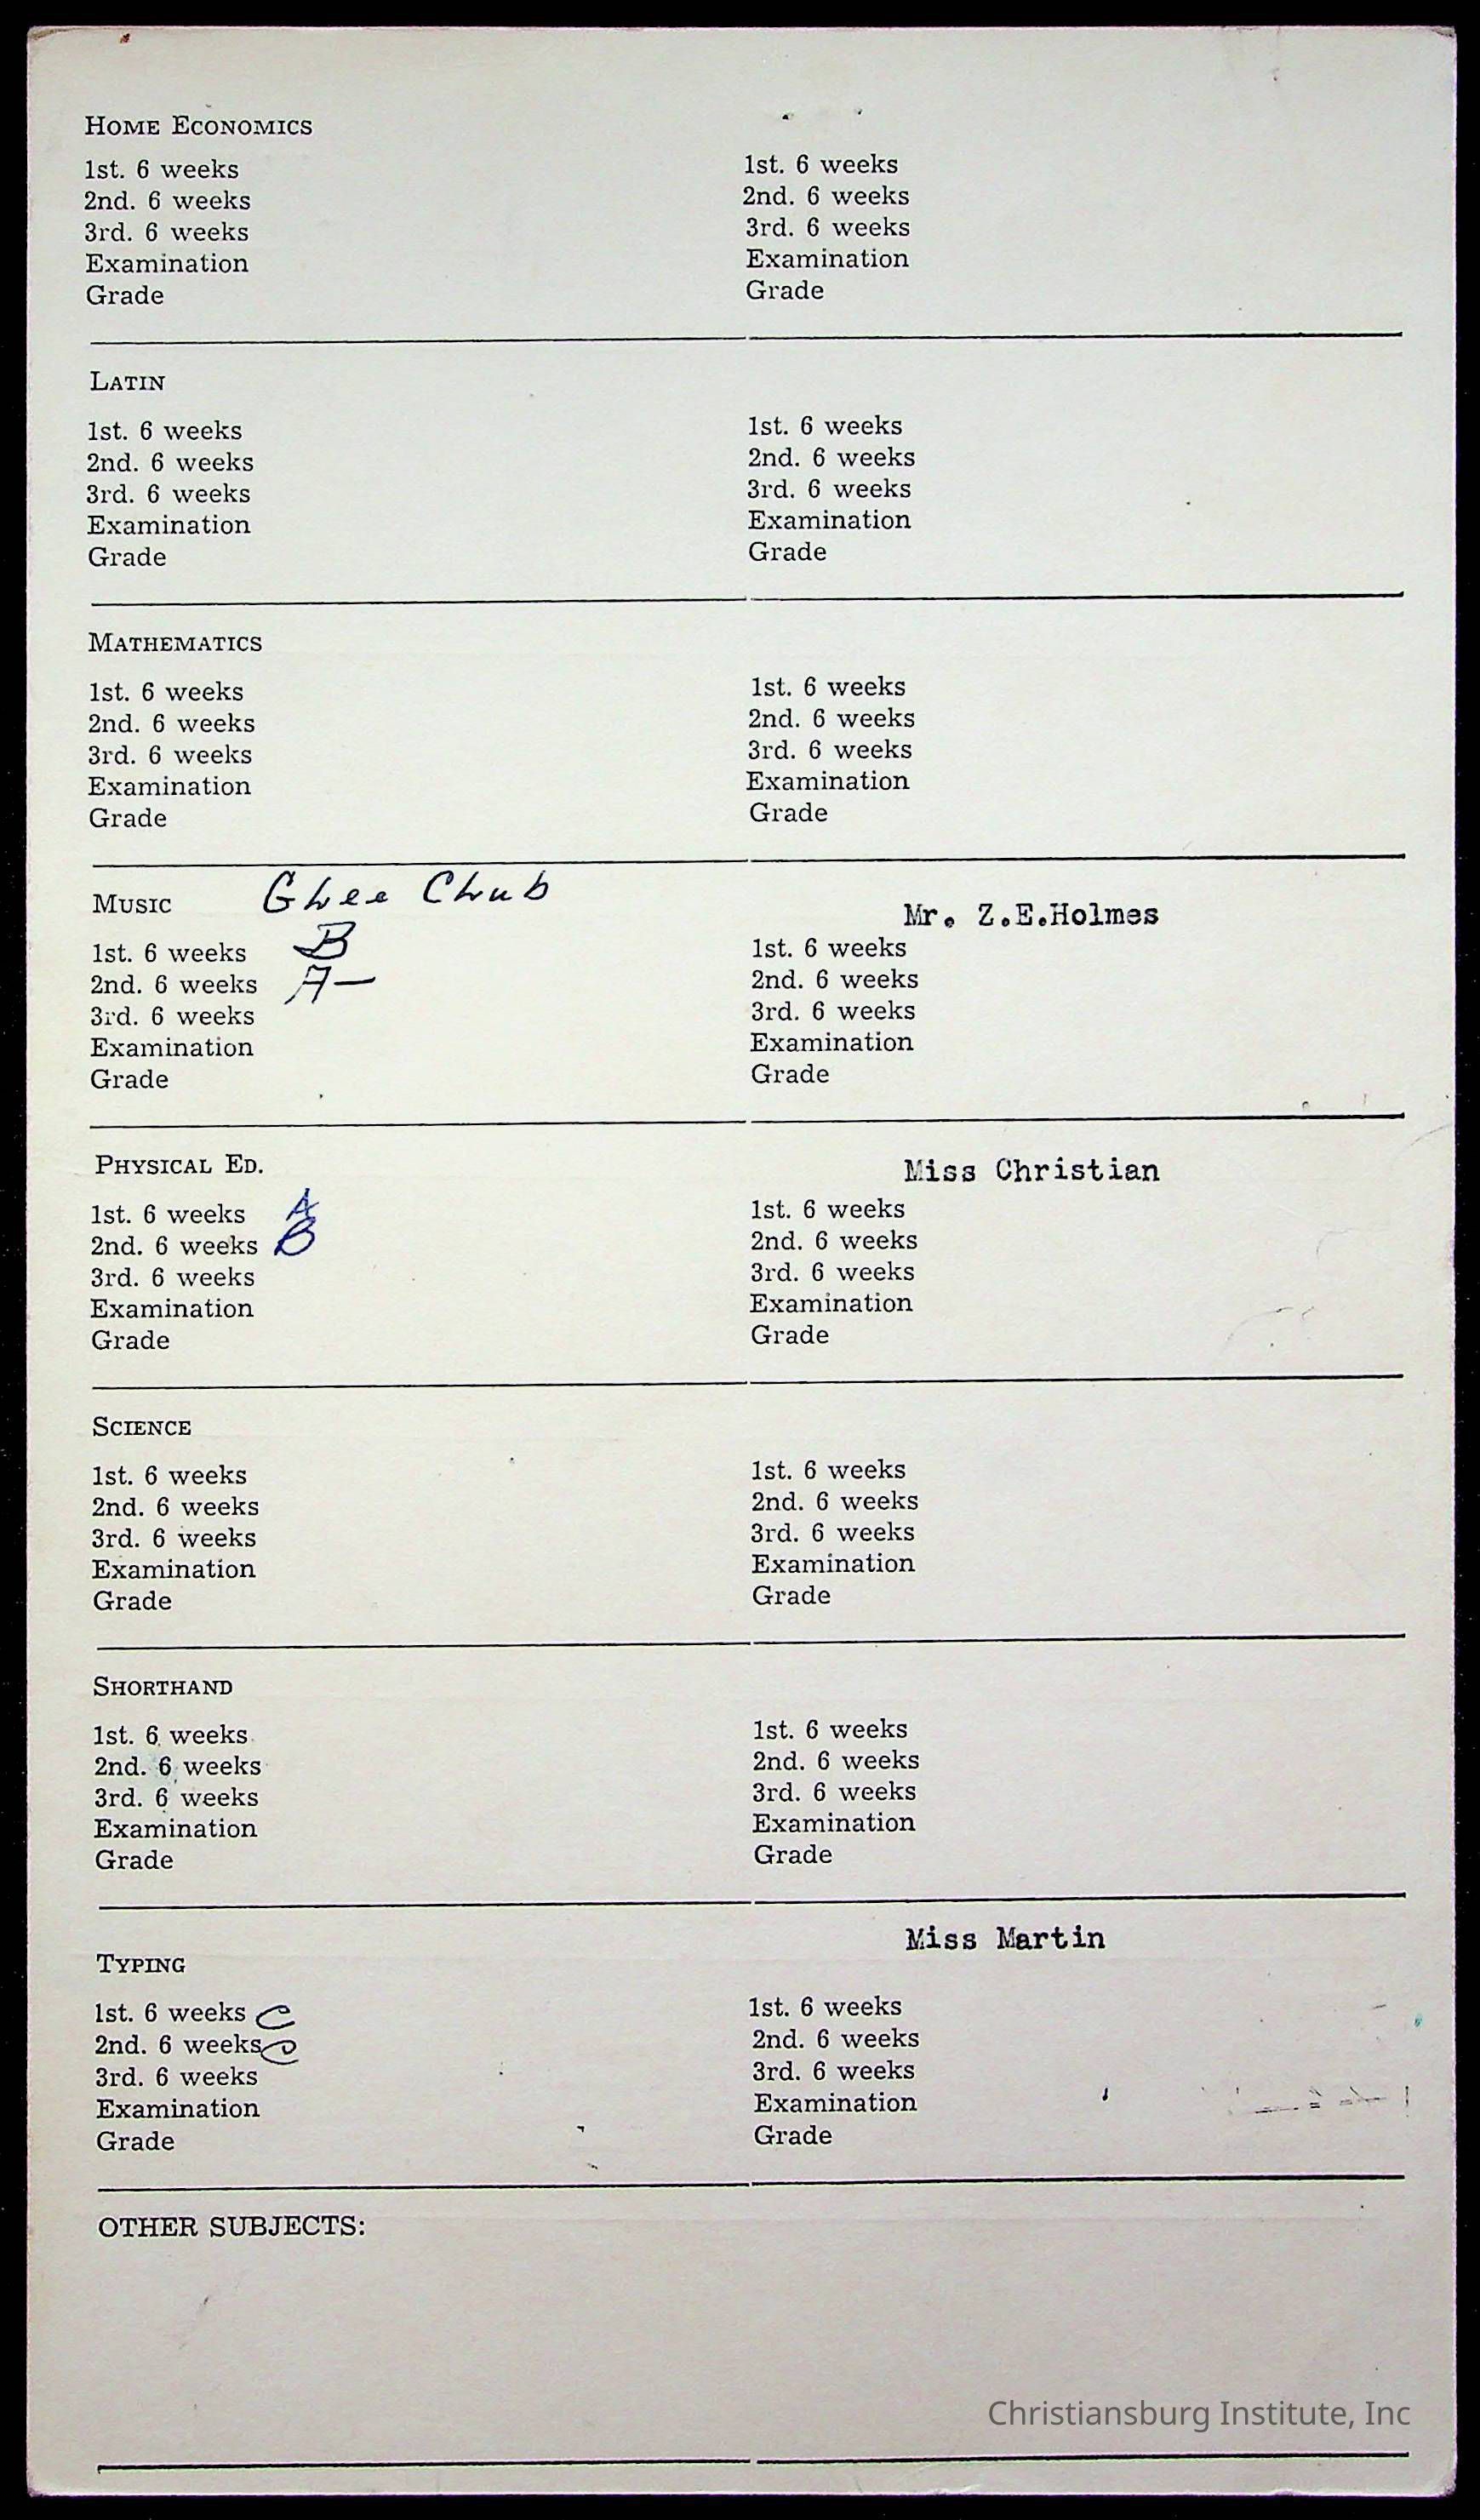 HOME ECONOMICS
1st. 6 weeks 1st. 6 weeks
2nd. 6 weeks 2nd. 6 weeks
3rd. 6 weeks 3rd. 6 weeks
Examination Examination
Grade Grade
LATIN
1st. 6 weeks 1st. 6 weeks
2nd. 6 weeks 2nd. 6 weeks
3rd. 6 weeks 3rd. 6 weeks
Examination Examination
Grade Grade
MATHEMATICS
1st. 6 weeks 1st. 6 weeks
2nd. 6 weeks 2nd. 6 weeks
3rd. 6 weeks 3rd. 6 weeks
Examination Examination
Grade Grade
MUSIC Glee Club Mr. Z.E.Holmes
1st. 6 weeks B 1st. 6 weeks
2nd. 6 weeks A- 2nd. 6 weeks
3rd. 6 weeks 3rd. 6 weeks
Examination Examination
Grade Grade
PHYSICAL ED. Miss Christian
1st. 6 weeks A 1st. 6 weeks
2nd. 6 weeks B 2nd. 6 weeks
3rd. 6 weeks 3rd. 6 weeks
Examination Examination
Grade Grade
SCIENCE
1st. 6 weeks 1st. 6 weeks
2nd. 6 weeks 2nd. 6 weeks
3rd. 6 weeks 3rd. 6 weeks
Examination Examination
Grade Grade
SHORTHAND
1st. 6 weeks 1st. 6 weeks
2nd. 6 weeks 2nd. 6 weeks
3rd. 6 weeks 3rd. 6 weeks
Examination Examination
Grade Grade
TYPING Miss Martin
1st. 6 weeks C 1st. 6 weeks
2nd. 6 weeks C 2nd. 6 weeks
3rd. 6 weeks 3rd. 6 weeks
Examination Examination
Grade Grade
OTHER SUBJECTS:
Christiansburg Institute, Inc